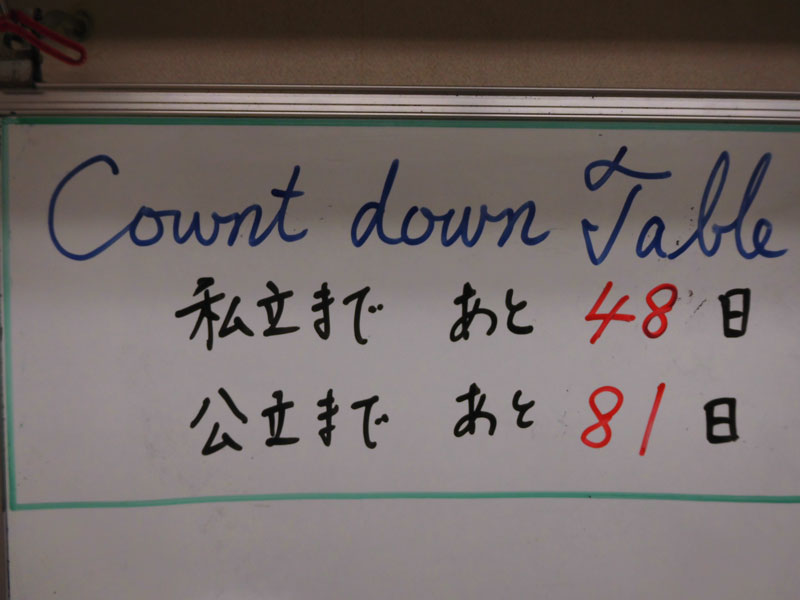 Count down Table
私立まで あと 48 日
公立まで あと 81 日